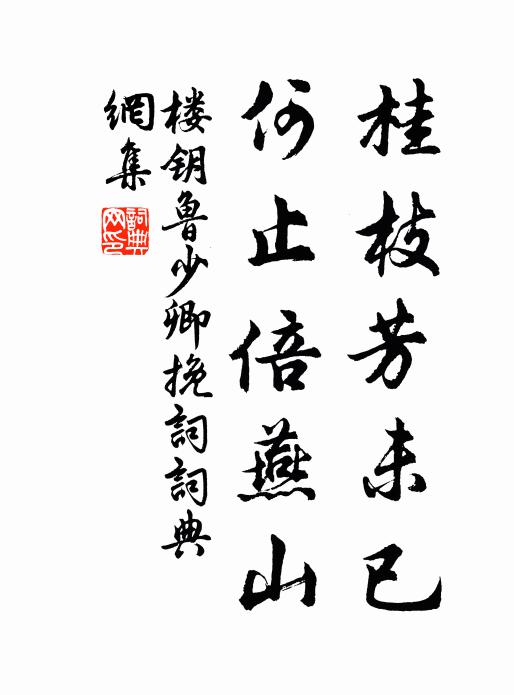 桂枝芳未已
何止倍燕山
楼钥魯少卿挽詞詞典
網集
詞典网印